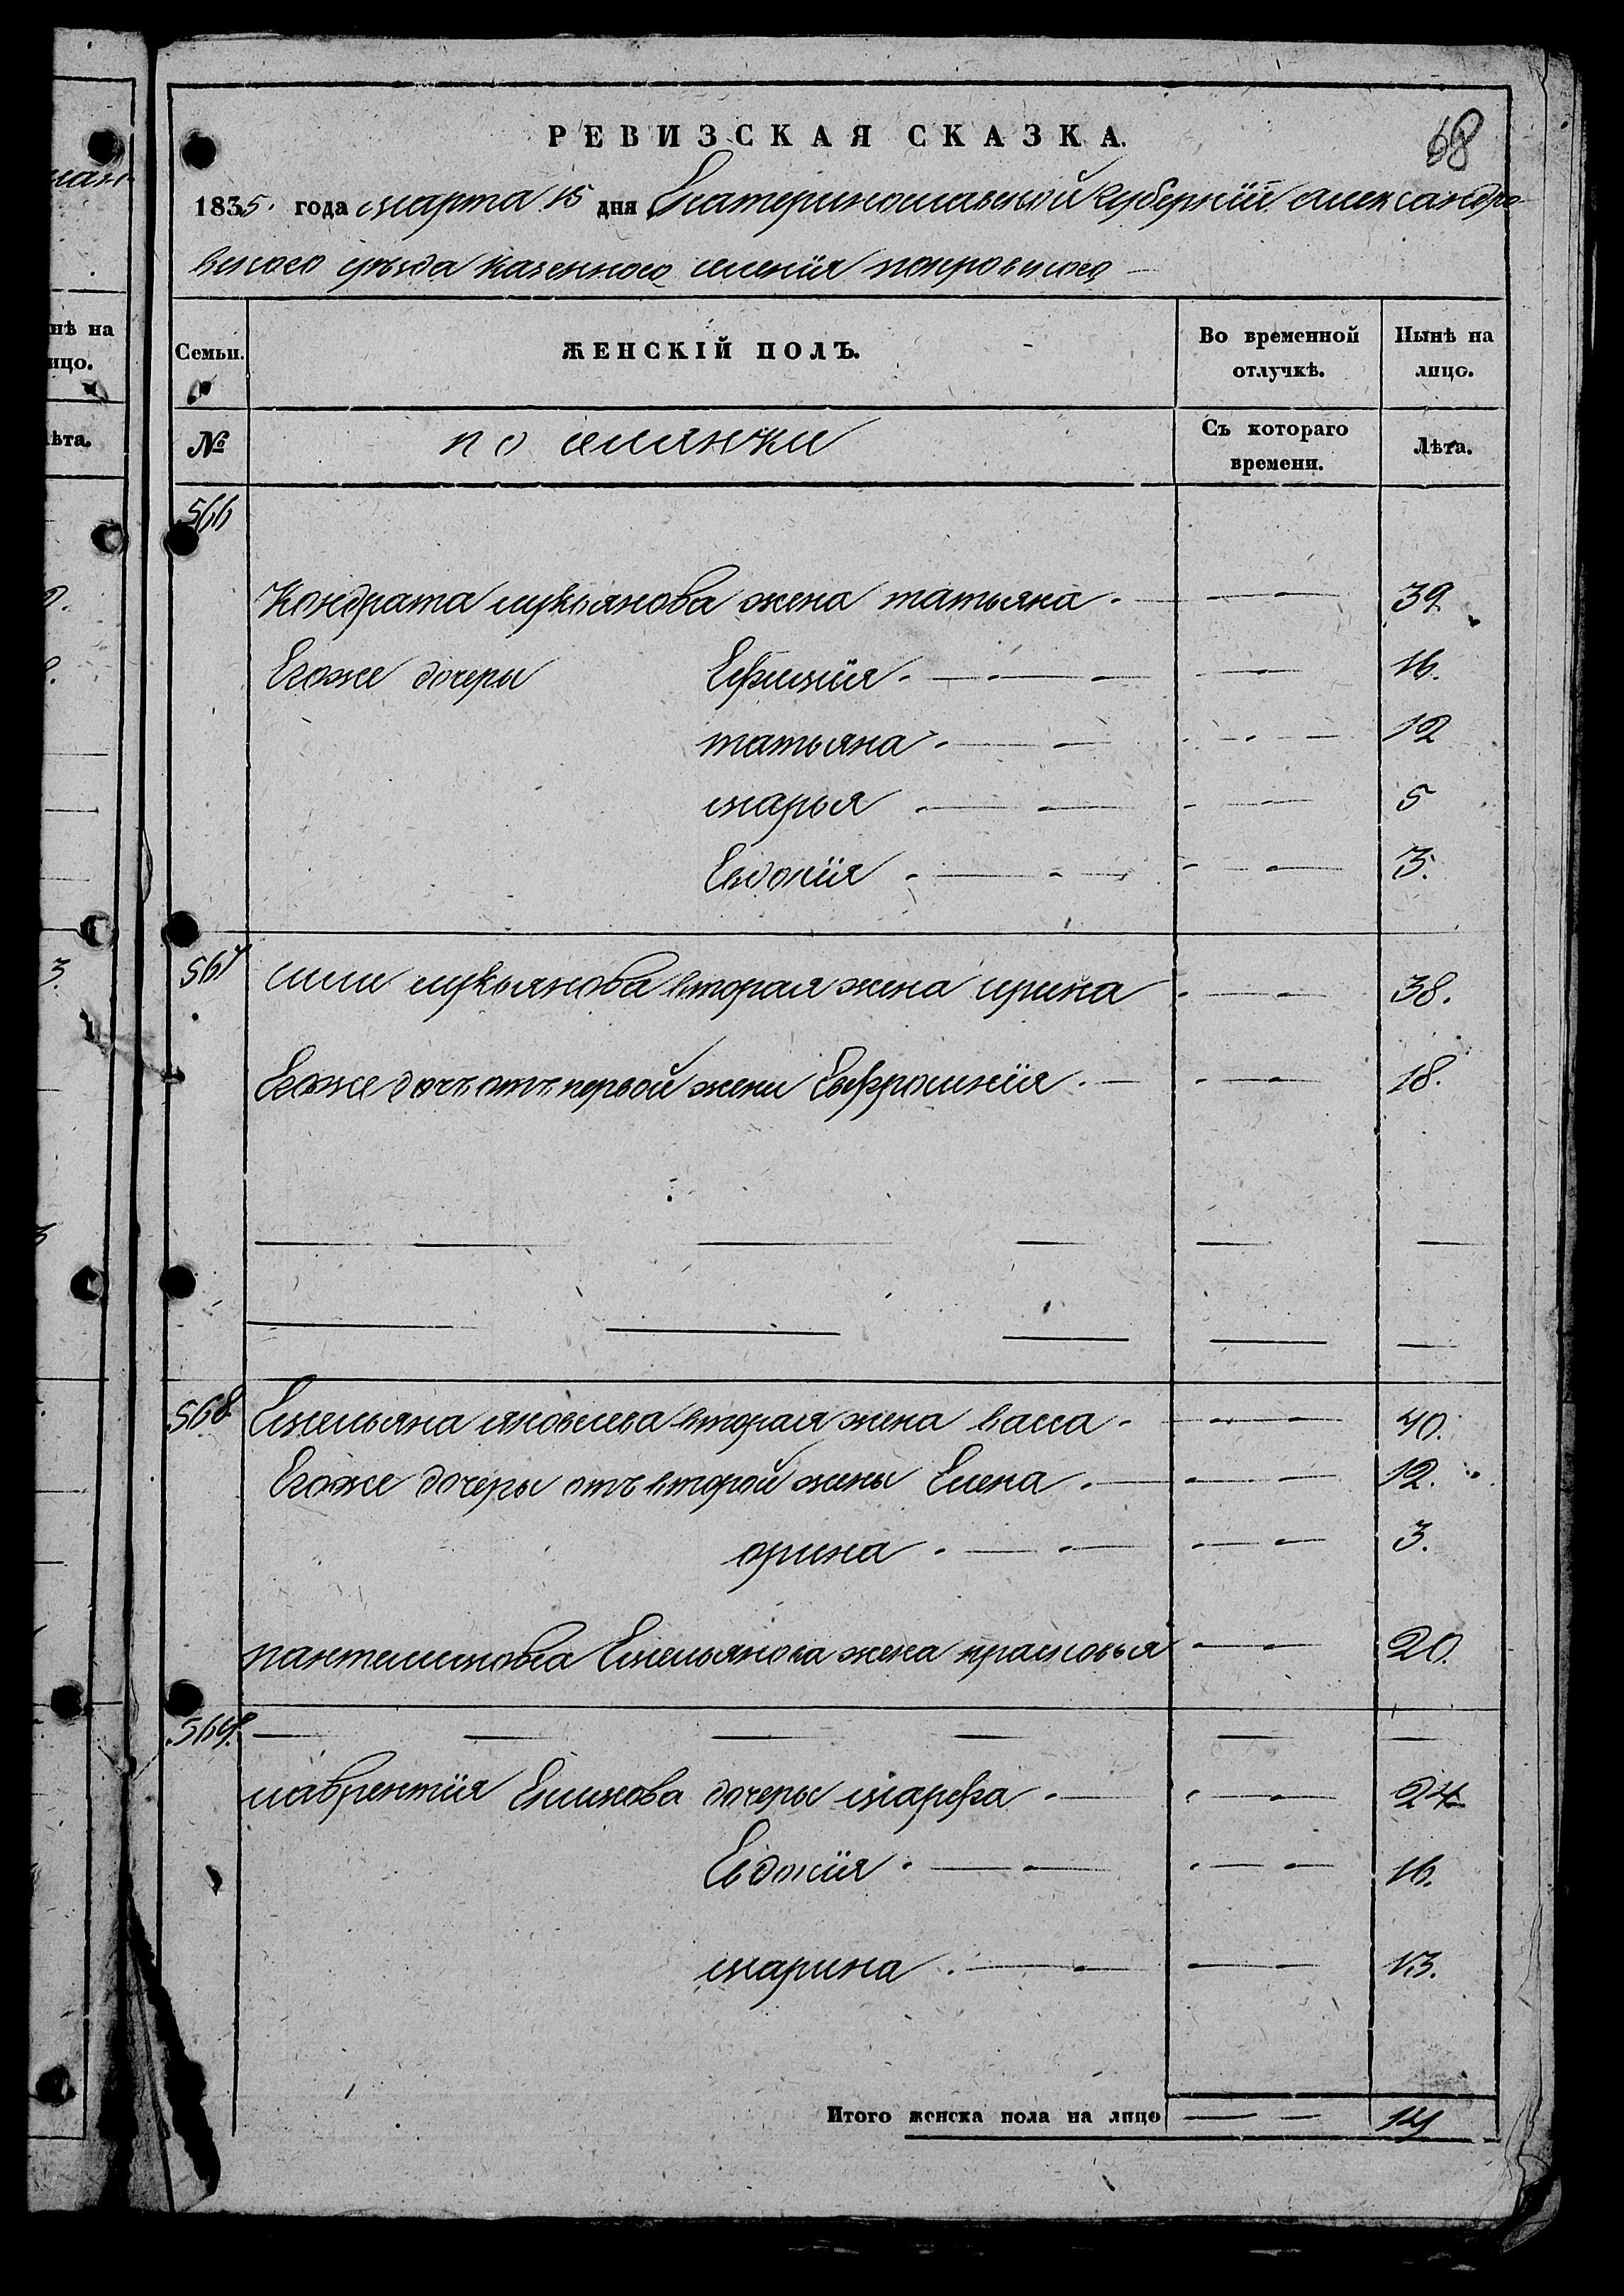 68
РЕВИЗСКАЯ СКАЗКА.
1835. года марта 15 дня Екатеринославской губерніи александро
вского уѣзда казенного селенія покровского
Семьи. ЖЕНСКІЙ ПОЛЪ. Во временной отлучкѣ. Нынѣ на лицо.
№ поселянки Съ котораго времени. Лѣта.
566
Кондрата лукьянова жена татьяна. 39.
Егоже дочеры Ефимія. 16.
татьяна. 12
марья. 5
Евдокія. 3.
567 силы лукьянова вторая жена ирина 38.
Егоже дочъ отъ первой жены Евфросинія. 18.
568 Емельяна яковлева вторая жена васса. 40.
Егоже дочеры отъ второй жены Елена. 12.
орина. 3.
пантелимона Емельянова жена прасковья 20.
569.
лаврентія дочеры марфа. 24
Евдокія. 16.
марина. 13.
Итого женска пола на лицо 14
нѣ на
ицо.
ѣта.
3.